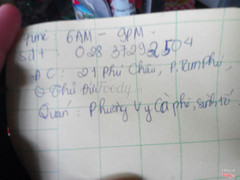 Time: 6AM - 9PM.
Sđt: 028 3729 2504
ĐC: 21 Phú Châu, P. Tam Phú,
Q Thủ Đức
Quán: Phương Vy Cà phê, sinh tố
Foody